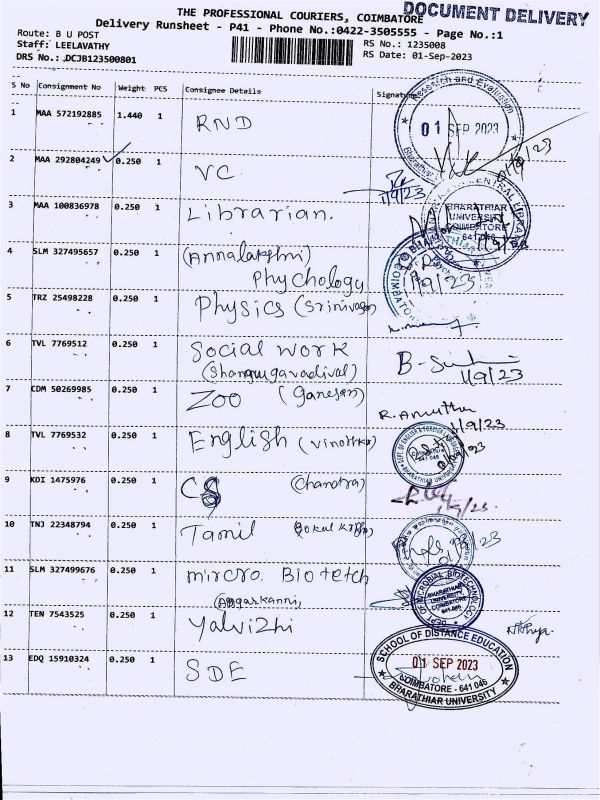 THE PROFESSIONAL COURIERS, COIMBATORE
DOCUMENT DELIVERY
Delivery Runsheet - P41 - Phone No.:0422-3505555 - Page No.:1
Route: B U POST
RS No.: 1235008
Staff: LEELAVATHY
RS Date: 01-Sep-2023
DRS No.: DCJB123500801
S No Consignment No Weight PCS Consignee Details Signature
1 MAA 572192885 1.440 1 RND
Research and Evaluation
01 SEP 2023
Bharathiar
1/9/23
2 MAA 292804249 0.250 1 VC
1/9/23
3 MAA 100836978 0.250 1 Librarian.
CENTRAL LIBRARY
BHARATHIAR
UNIVERSITY
COIMBATORE
641 046
4 SLM 327495657 0.250 1 (Annalakshmi)
Phychology
1/9/23
5 TRZ 25498228 0.250 1 Physics (Srinivasan)
6 TVL 7769512 0.250 1 Social work
(Shanmugavadival)
1/9/23
7 CDM 50269985 0.250 1 Zoo (Ganesan)
R. Amutha
1/9/23
8 TVL 7769532 0.250 1 English (Vinothka)
DEPT. OF ENGLISH & FOREIGN LANGUAGES
BHARATHIAR UNIVERSITY
641 046
9 KDI 1475976 0.250 1 CS (Chandra)
1/9/23.
10 TNJ 22348794 0.250 1 Tamil
11 SLM 327499676 0.250 1 mircro. Biotetch
(Angarkanni)
DEPT. OF MICROBIAL BIOTECHNOLOGY
BHARATHIAR
UNIVERSITY
COIMBATORE
641 046
12 TEN 7543525 0.250 1 Yalvizhi
13 EDQ 15910324 0.250 1 SDE
SCHOOL OF DISTANCE EDUCATION
01 SEP 2023
COIMBATORE - 641 046
BHARATHIAR UNIVERSITY